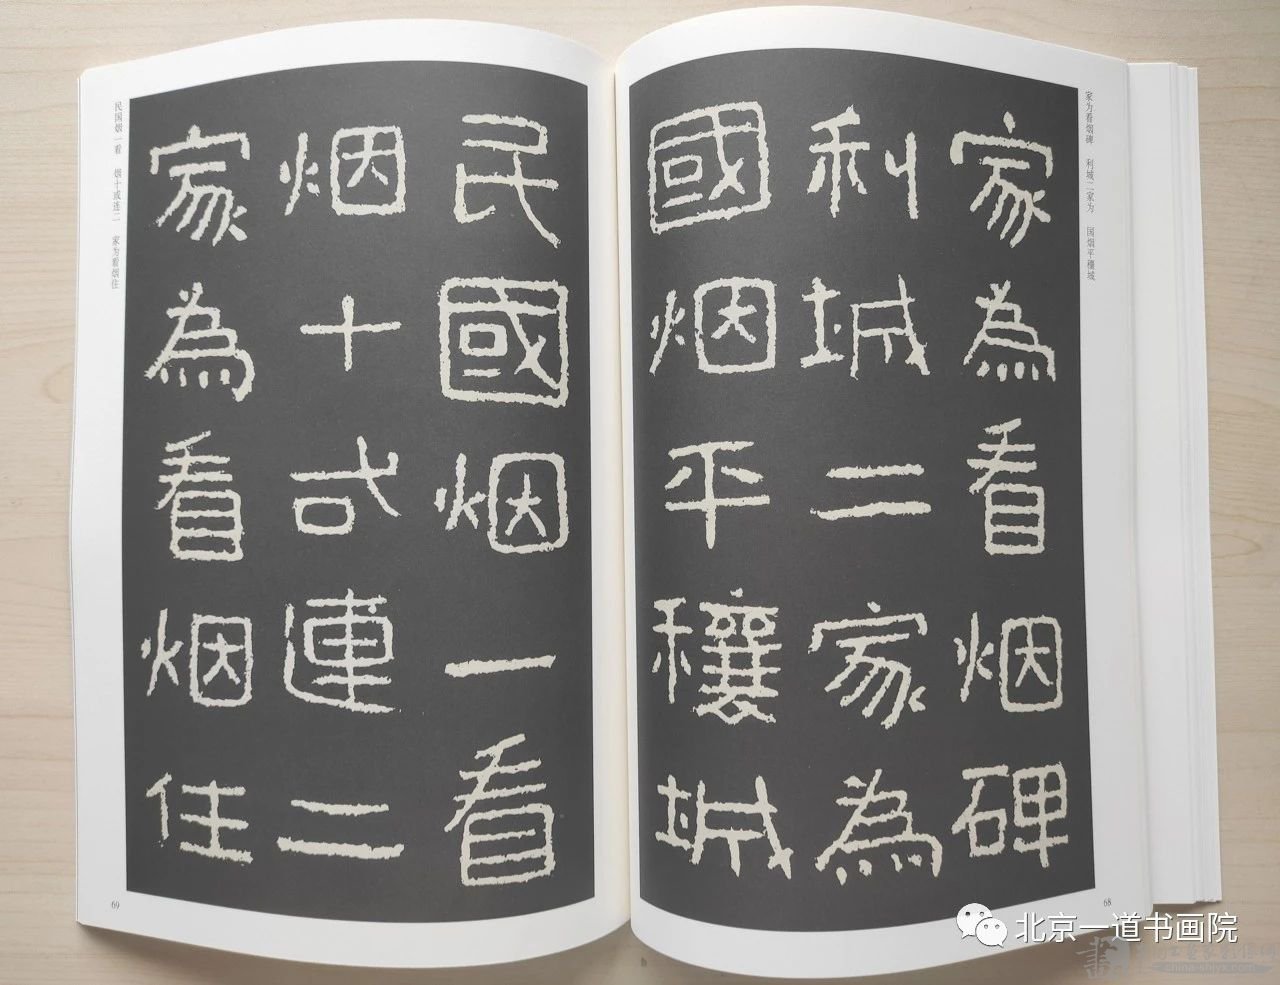 家为看烟碑 利城二家为 国烟平穰城
家為看烟碑
利城二家為
國烟平穰城
68
民国烟一看 烟十或连二 家为看烟住
民國烟一看
烟十或連二
家為看烟住
69
北京一道书画院
china-shjyx.com